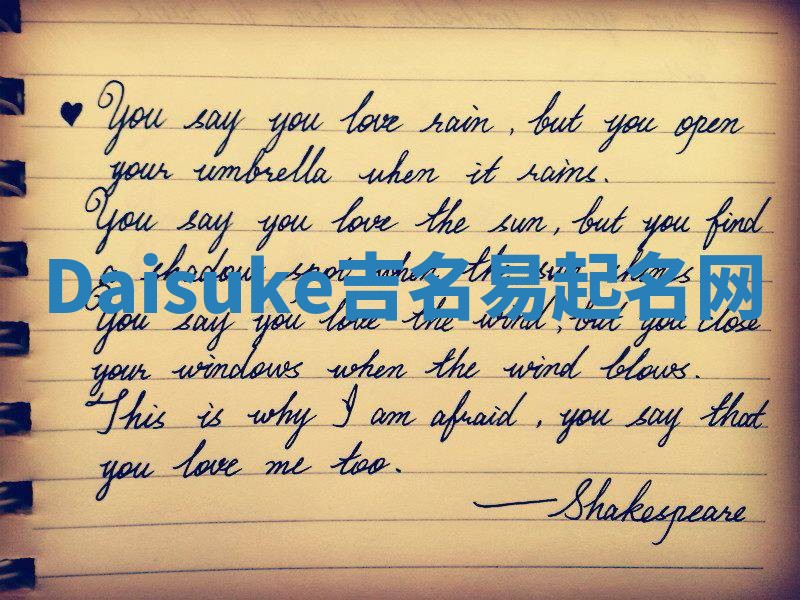 ♥ You say you love rain, but you open
your umbrella when it rains.
You say you love the sun, but you find
a shadow spot when the sun shines
Daisuke吉名易起名网
You say you love the wind, but you close
your windows when the wind blows.
This is why I am afraid, you say that
you love me too.
—Shakespeare